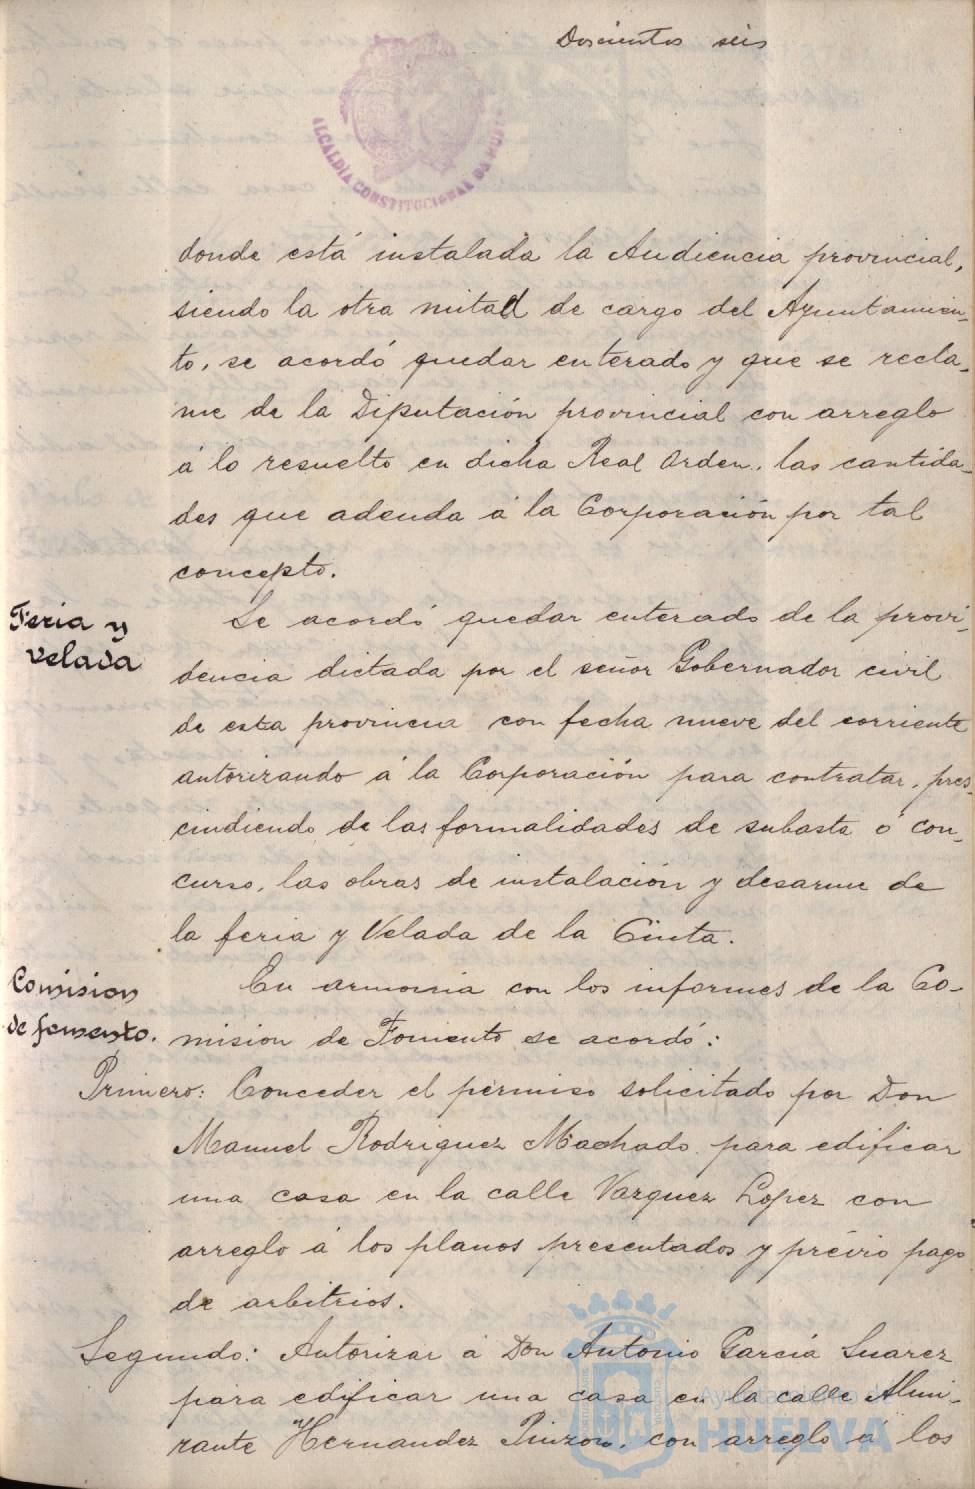 Doscientos seis
ALCALDÍA CONSTITUCIONAL DE
donde está instalada la Audiencia provincial,
siendo la otra mitad de cargo del Ayuntamien-
to, se acordó quedar enterado y que se recla-
me de la Diputación provincial con arreglo
á lo resuelto en dicha Real Orden, las cantida-
des que adeuda á la Corporación por tal
concepto.
Feria y
velada
Se acordó quedar enterado de la provi-
dencia dictada por el señor Gobernador civil
de esta provincia con fecha nueve del corriente
autorizando á la Corporación para contratar, pres-
cindiendo de las formalidades de subasta ó con-
curso, las obras de instalación y desarme de
la feria y Velada de la Cinta.
Comision
de fomento.
En armonia con los informes de la Co-
mision de Fomento se acordó:
Primero: Conceder el permiso solicitado por Don
Manuel Rodriguez Machado para edificar
una casa en la calle Vazquez Lopez con
arreglo á los planos presentados y prévio pago
de arbitrios.
Segundo: Autorizar á Don Antonio García Suarez
para edificar una casa en la calle Almi-
rante Hernandez Pinzon, con arreglo á los
Ayuntamiento de
HUELVA